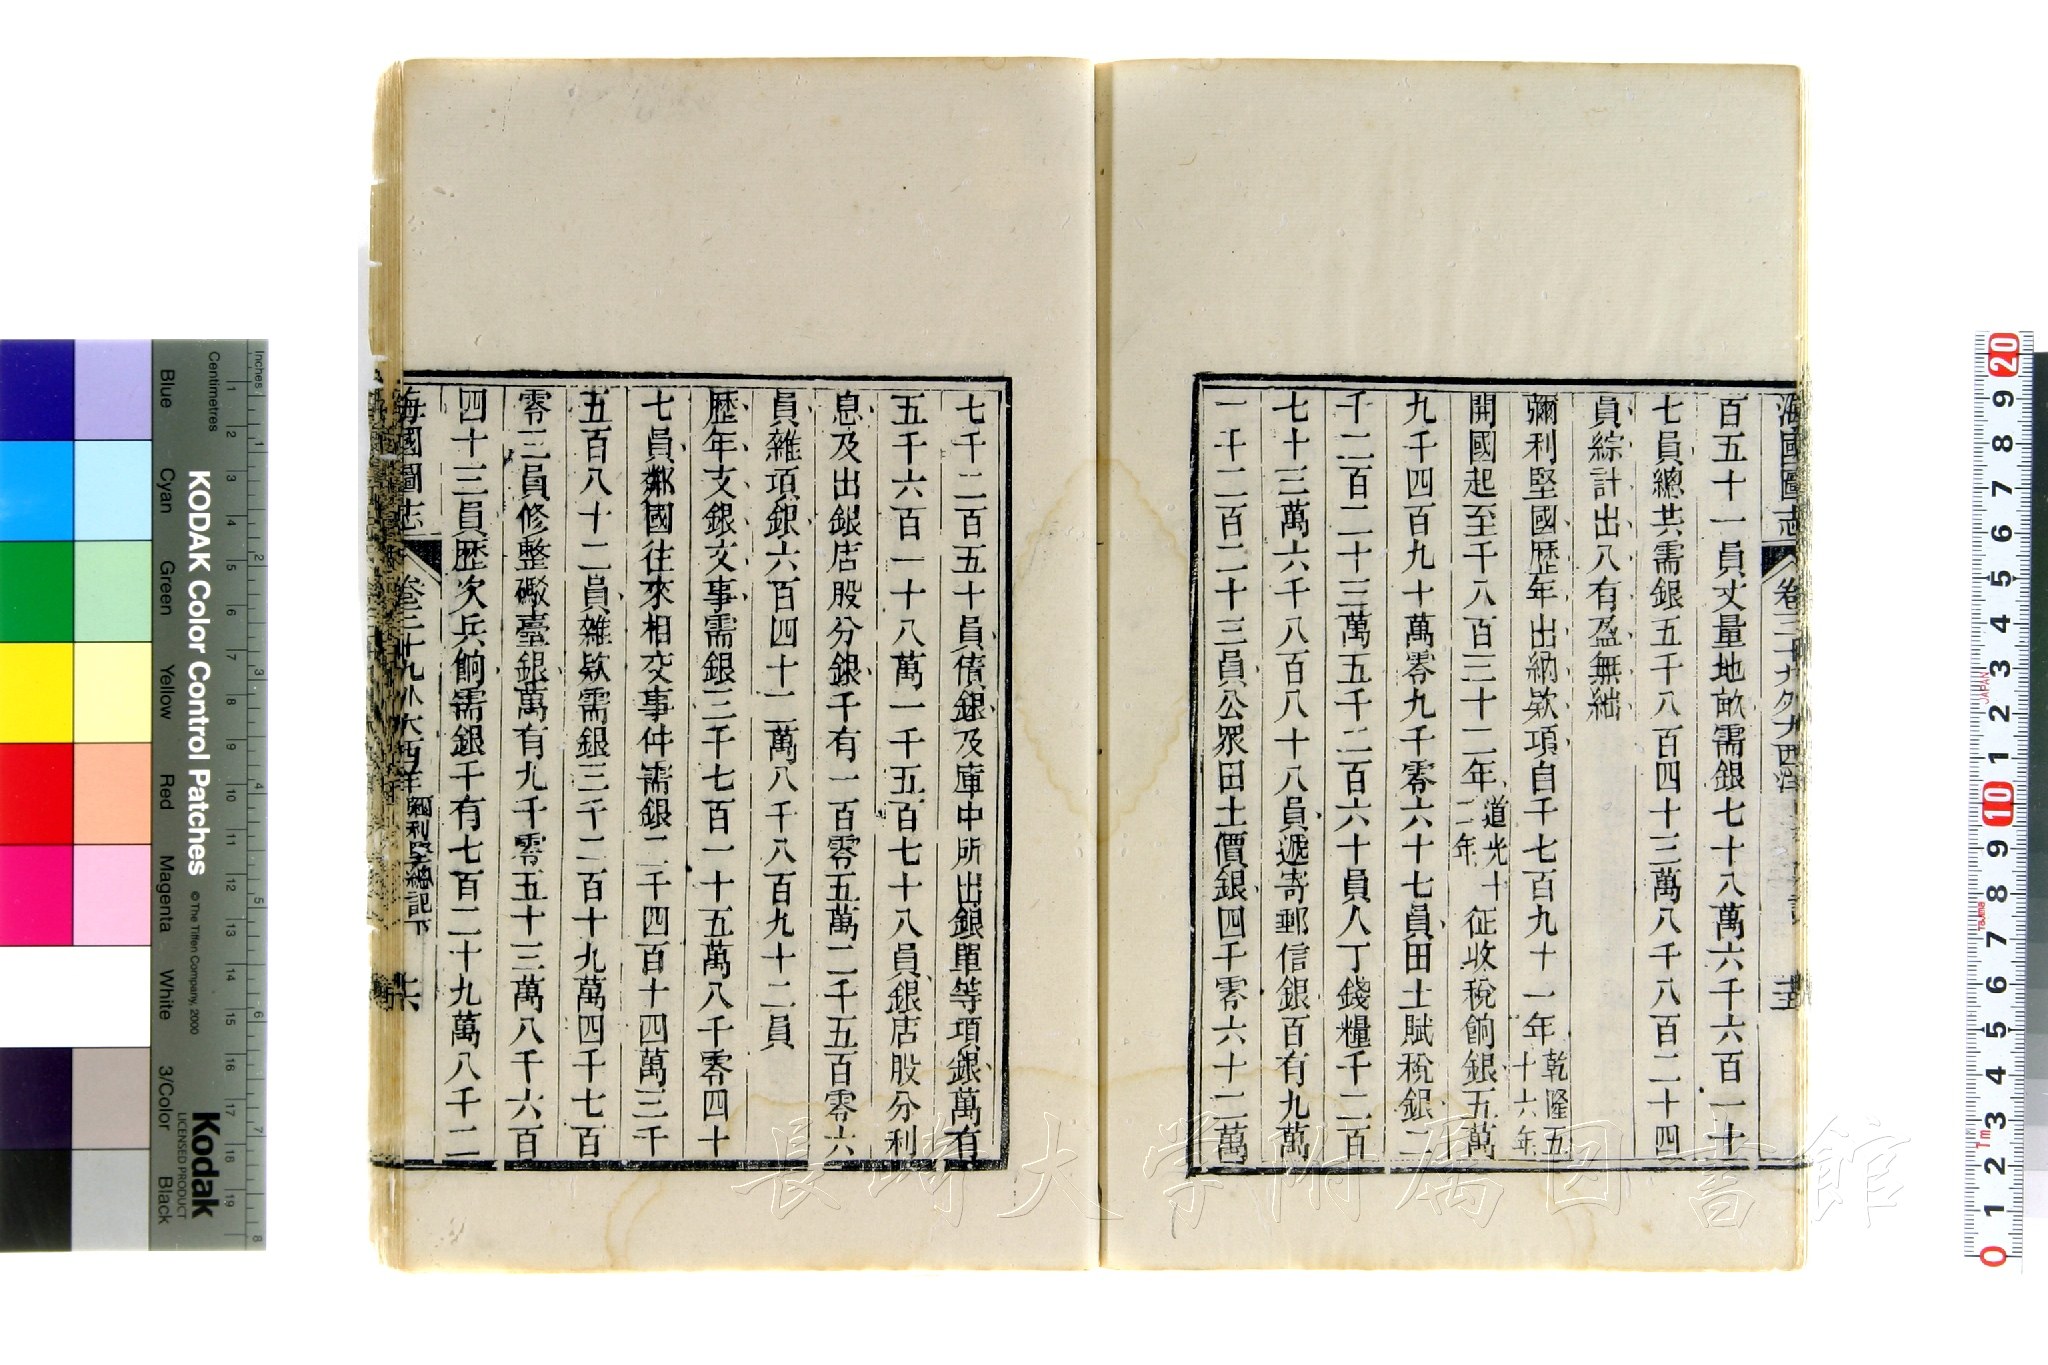 海國圖志 卷三十九外大西洋
百五十一員丈量地畝需銀七十八萬六千六百一十
七員總共需銀五千八百四十三萬八千八百二十四
員綜計出入有盈無絀
彌利堅國歷年出納欵項自千七百九十一年乾隆五十六年
開國起至千八百三十二年道光十二年征收稅餉銀五萬
九千四百九十萬零九千零六十七員田土賦稅銀二
千二百二十三萬五千二百六十員人丁錢糧千二百
七十三萬六千八百八十八員遞寄郵信銀百有九萬
一千二百二十三員公眾田土價銀四千零六十二萬
七千二百五十員債銀及庫中所出銀單等項銀萬有
五千六百一十八萬一千五百七十八員銀店股分利
息及出銀店股分銀千有一百零五萬二千五百零六
員雜項銀六百四十二萬八千八百九十二員
歷年支銀文事需銀三千七百一十五萬八千零四十
七員鄰國往來相交事件需銀二千四百十四萬三千
五百八十二員雜欵需銀三千二百十九萬四千七百
零三員修整礮臺銀萬有九千零五十三萬八千六百
四十三員歷次兵餉需銀千有七百二十九萬八千二
海國圖志 卷三十九外大西洋 彌利堅總記下
KODAK Color Control Patches
© The Tiffen Company, 2000
Kodak
LICENSED PRODUCT
Inches
Centimetres
Blue
Cyan
Green
Yellow
Red
Magenta
White
3/Color
Black
長崎大学附属図書館
JAPAN
Tajima